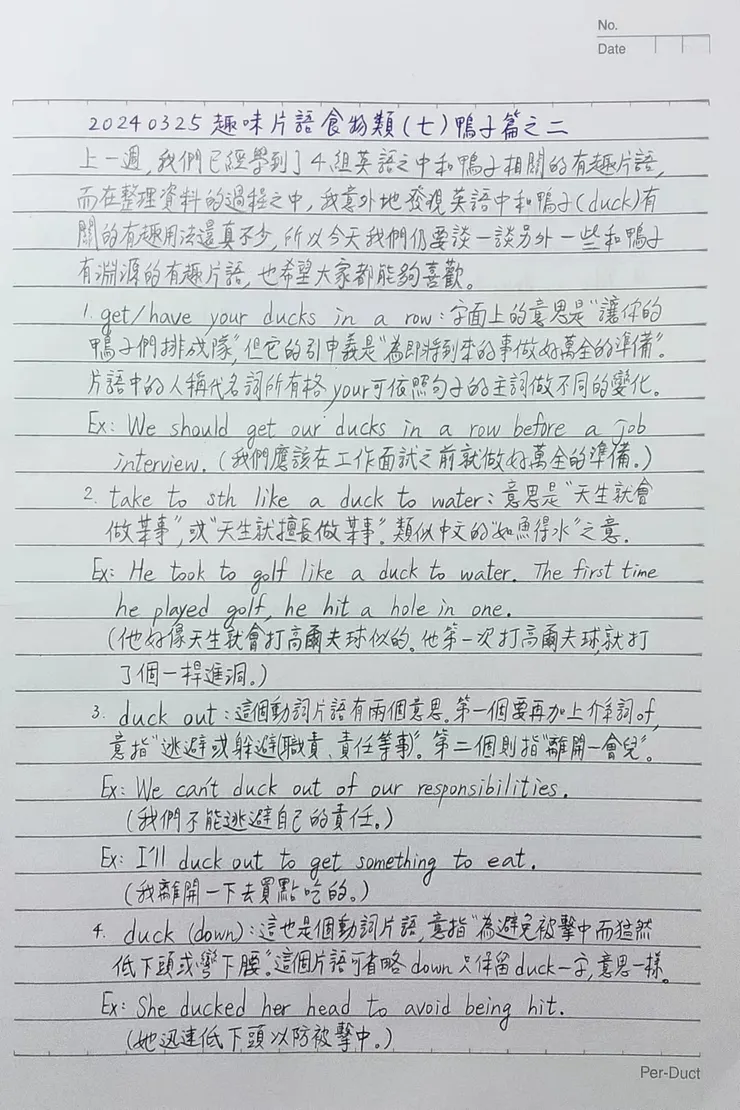 No.
Date
20240325 趣味片語食物類(七)鴨子篇之二
上一週,我們已經學到了4組英語之中和鴨子相關的有趣片語,
而在整理資料的過程之中,我意外地發現英語中和鴨子(duck)有
關的有趣用法還真不少,所以今天我們仍要談一談另外一些和鴨子
有淵源的有趣片語,也希望大家都能夠喜歡。
1. get/have your ducks in a row:字面上的意思是"讓你的
鴨子們排成隊",但它的引申義是"為即將到來的事做好萬全的準備"。
片語中的人稱代名詞所有格your可依照句子的主詞做不同的變化。
Ex: We should get our ducks in a row before a job
interview. (我們應該在工作面試之前就做好萬全的準備。)
2. take to sth like a duck to water:意思是"天生就會
做某事",或"天生就擅長做某事"。類似中文的"如魚得水"之意.
Ex: He took to golf like a duck to water. The first time
he played golf, he hit a hole in one.
(他好像天生就會打高爾夫球似的。他第一次打高爾夫球,就打
了個一桿進洞。)
3. duck out:這個動詞片語有兩個意思。第一個要再加上介系詞of,
意指"逃避或躲避(職責、責任等事)"。第二個則指"離開一會兒"。
Ex: We can't duck out of our responsibilities.
(我們不能逃避自己的責任。)
Ex: I'll duck out to get something to eat.
(我離開一下去買點吃的。)
4. duck (down):這也是個動詞片語,意指"為避免被擊中而猛然
低下頭或彎下腰"。這個片語可省略down只保留duck一字,意思一樣。
Ex: She ducked her head to avoid being hit.
(她迅速低下頭以防被擊中。)
Per-Duct